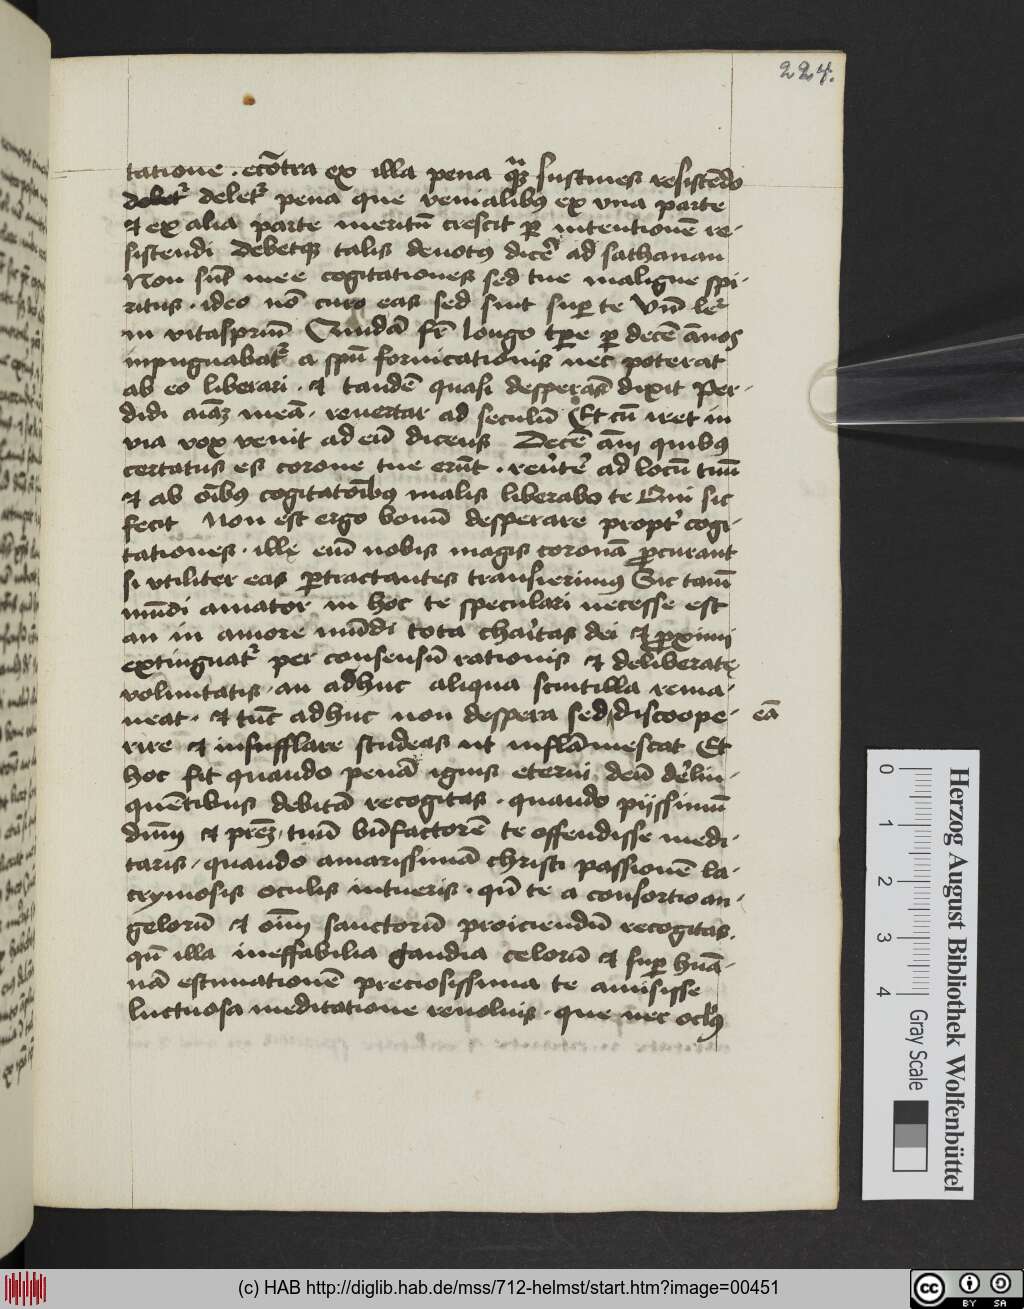 224.
tatione . ecōtra ex illa pena quā sustines resistēdo
debet delet᷑ pena que venialibus ex vna parte
et ex alia parte meritū crescit per intentionē re-
sistendi Debetque talis deuotus dicere ad sathanan
Non sunt mee cogitationes sed tue maligne spi-
ritus . ideo nō curo eas sed sint super te Vn̄ ler
in vitaspatrum Cuidā fr̄i longo tpe per decē ānos
inpugnabat᷑ a spū fornicationis nec poterat
ab eo liberari . et tandē quasi desperās dixit Per-
didi aīaꝫ meā . reuertar ad seculū Et cū iret in
via vox venit ad eū dicens Decē āni quibus
certatus es corone tue erūt . reuertere ad locū tuū
et ab oībus cogitatoībus malis liberabo te Qui sic
fecit Non est ergo bonū desperare propter cogi-
tationes . ille enī nobis magis coronā procurant
si vtiliter eas pertractantes transierimus Sic tamē
mūdi amator in hoc te speculari necesse est
an in amore mūdi tota charitas dei et proximi
extinguat᷑ per consensū rationis et deliberate
voluntatis . an adhuc aliqua scintilla rema-
neat . et tūc adhuc non despera sed discoope- eā
rire et insufflare studeas ut inflāmescat Et
hoc fit quando penā ignis eterni deū delin-
quētibus debitā recogitas . quando piissimū
dnm̄ et preꝫ tuū bn̄factorē te offendisse medi-
taris . quando amarissimā christi passionē la-
crymosis oculis intueris . qn̄ te a consortio an-
gelorū et oīm sanctorū proiciendū recogitas .
qn̄ illa ineffabilia gaudia celorū et super hūa-
nā estimationē preciosissima te amisisse
luctuosa meditatione reuoluis . que nec oclus
Herzog August Bibliothek Wolfenbüttel
0 1 2 3 4
Gray Scale
(c) HAB http://diglib.hab.de/mss/712-helmst/start.htm?image=00451
cc BY SA